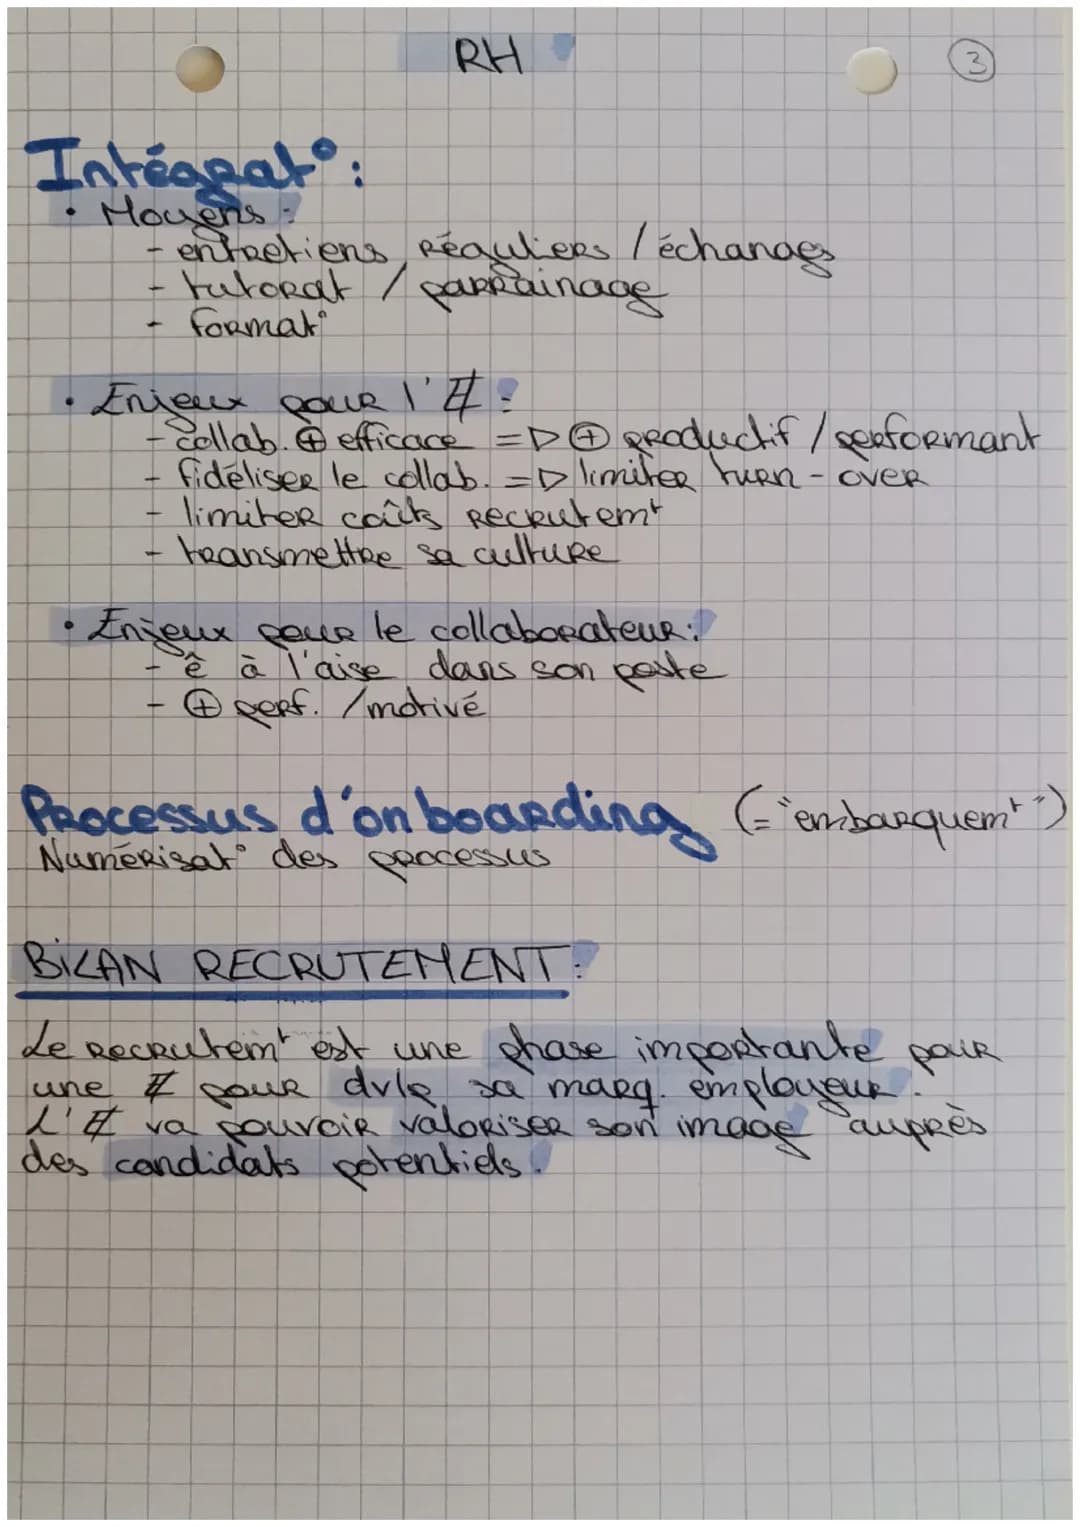 RH
3
Intégrat° :
• Moyens :
- entretiens réguliers / échanges
- tutorat / parrainage
- format°
• Enjeux pour l'E :
- collab. ⊕ efficace => ⊕ productif / performant
- fidéliser le collab. => limiter turn-over
- limiter coûts recrutemt
- transmettre sa culture
• Enjeux pour le collaborateur :
- ê à l'aise dans son poste
- ⊕ perf. / motivé
Processus d'onboarding (= "embarquemt")
Numérisat° des processus
BILAN RECRUTEMENT :
Le recrutemt est une phase importante pour
une E pour dvlp sa marq. employeur.
L'E va pouvoir valoriser son image auprès
des candidats potentiels.